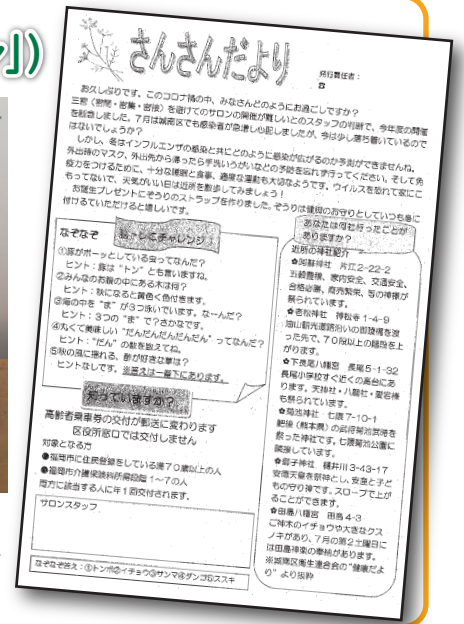 ン」)
さんさんだより
発行責任者：
☎
お久しぶりです。このコロナ禍の中、みなさんどのようにお過ごしですか？
三密（密閉・密集・密接）を避けてのサロンの開催が難しいとのスタッフの判断で、今年度の開催
を断念しました。7月は城南区でも感染者が急増し心配しましたが、今は少し落ち着いているので
はないでしょうか？
しかし、冬はインフルエンザの感染と共にどのように感染が広がるのか予測ができませんね。
外出時のマスク、外出先から帰ったら手洗いうがいなどの予防を忘れず行ってください。そして免
疫力をつけるために、十分な睡眠と食事、適度な運動も大切なようです。ウイルスを恐れて家にこ
もってないで、天気がいい日は近所を散歩してみましょう！
お誕生プレゼントにぞうりのストラップを作りました。ぞうりは健脚のお守りとしていつも身に
付けていただけると嬉しいです。
なぞなぞ
チャレンジ！
①豚がボーッとしている虫ってなんだ？
ヒント：豚は“トン”とも言いますね。
②みんなのお腹の中にある木は何？
ヒント：秋になると黄色く色付きます。
③海の中を“ま”が3つ泳いでいます。な～んだ？
ヒント：3つの“ま”で？さかなです。
④丸くて美味しい“だんだんだんだんだん”ってなんだ？
ヒント：“だん”の数を数えてね。
⑤秋の風に揺れる、酢が好きな草は？
ヒントなしです。※答えは一番下にあります。
知っていますか？
高齢者乗車券の交付が郵送に変わります
区役所窓口では交付しません
対象となる方
●福岡市に住民登録をしている満70歳以上の人
●福岡市介護保険料所得段階1～7の人
両方に該当する人に年1回交付されます。
サロンスタッフ
なぞなぞ答え：①トンボ②イチョウ③サンマ④ダンゴ⑤ススキ
あなたは何社行ったことが
ありますか？
近所の神社紹介
✿阿蘇神社 片江2-22-2
五穀豊穣、家内安全、交通安全、
合格必勝、商売繁栄、等の神様が
祭られています。
✿老松神社 神松寺1-4-9
油山観光道路沿いの御陵橋を渡
った先で、70段以上の階段を上
がります。
✿下長尾八幡宮 長尾5-1-32
長尾小学校すぐ近くの高台にあ
ります。天神社・八龍社・愛宕様
も祭られています。
✿菊池神社 七隈7-10-1
肥後（熊本県）の武将菊池武時を
祭った神社です。七隈菊池公園に
隣接しています。
神社 樋井川3-43-17
安徳天皇を祭神とし、安産と子ど
もの守り神です。スロープで上が
ることができます。
✿田島八幡宮 田島4-3
ご神木のイチョウや大きなクス
ノキがあり、7月の第2土曜日に
は田島神楽の奉納があります。
※城南区衛生連合会の“健康だよ
り”より抜粋